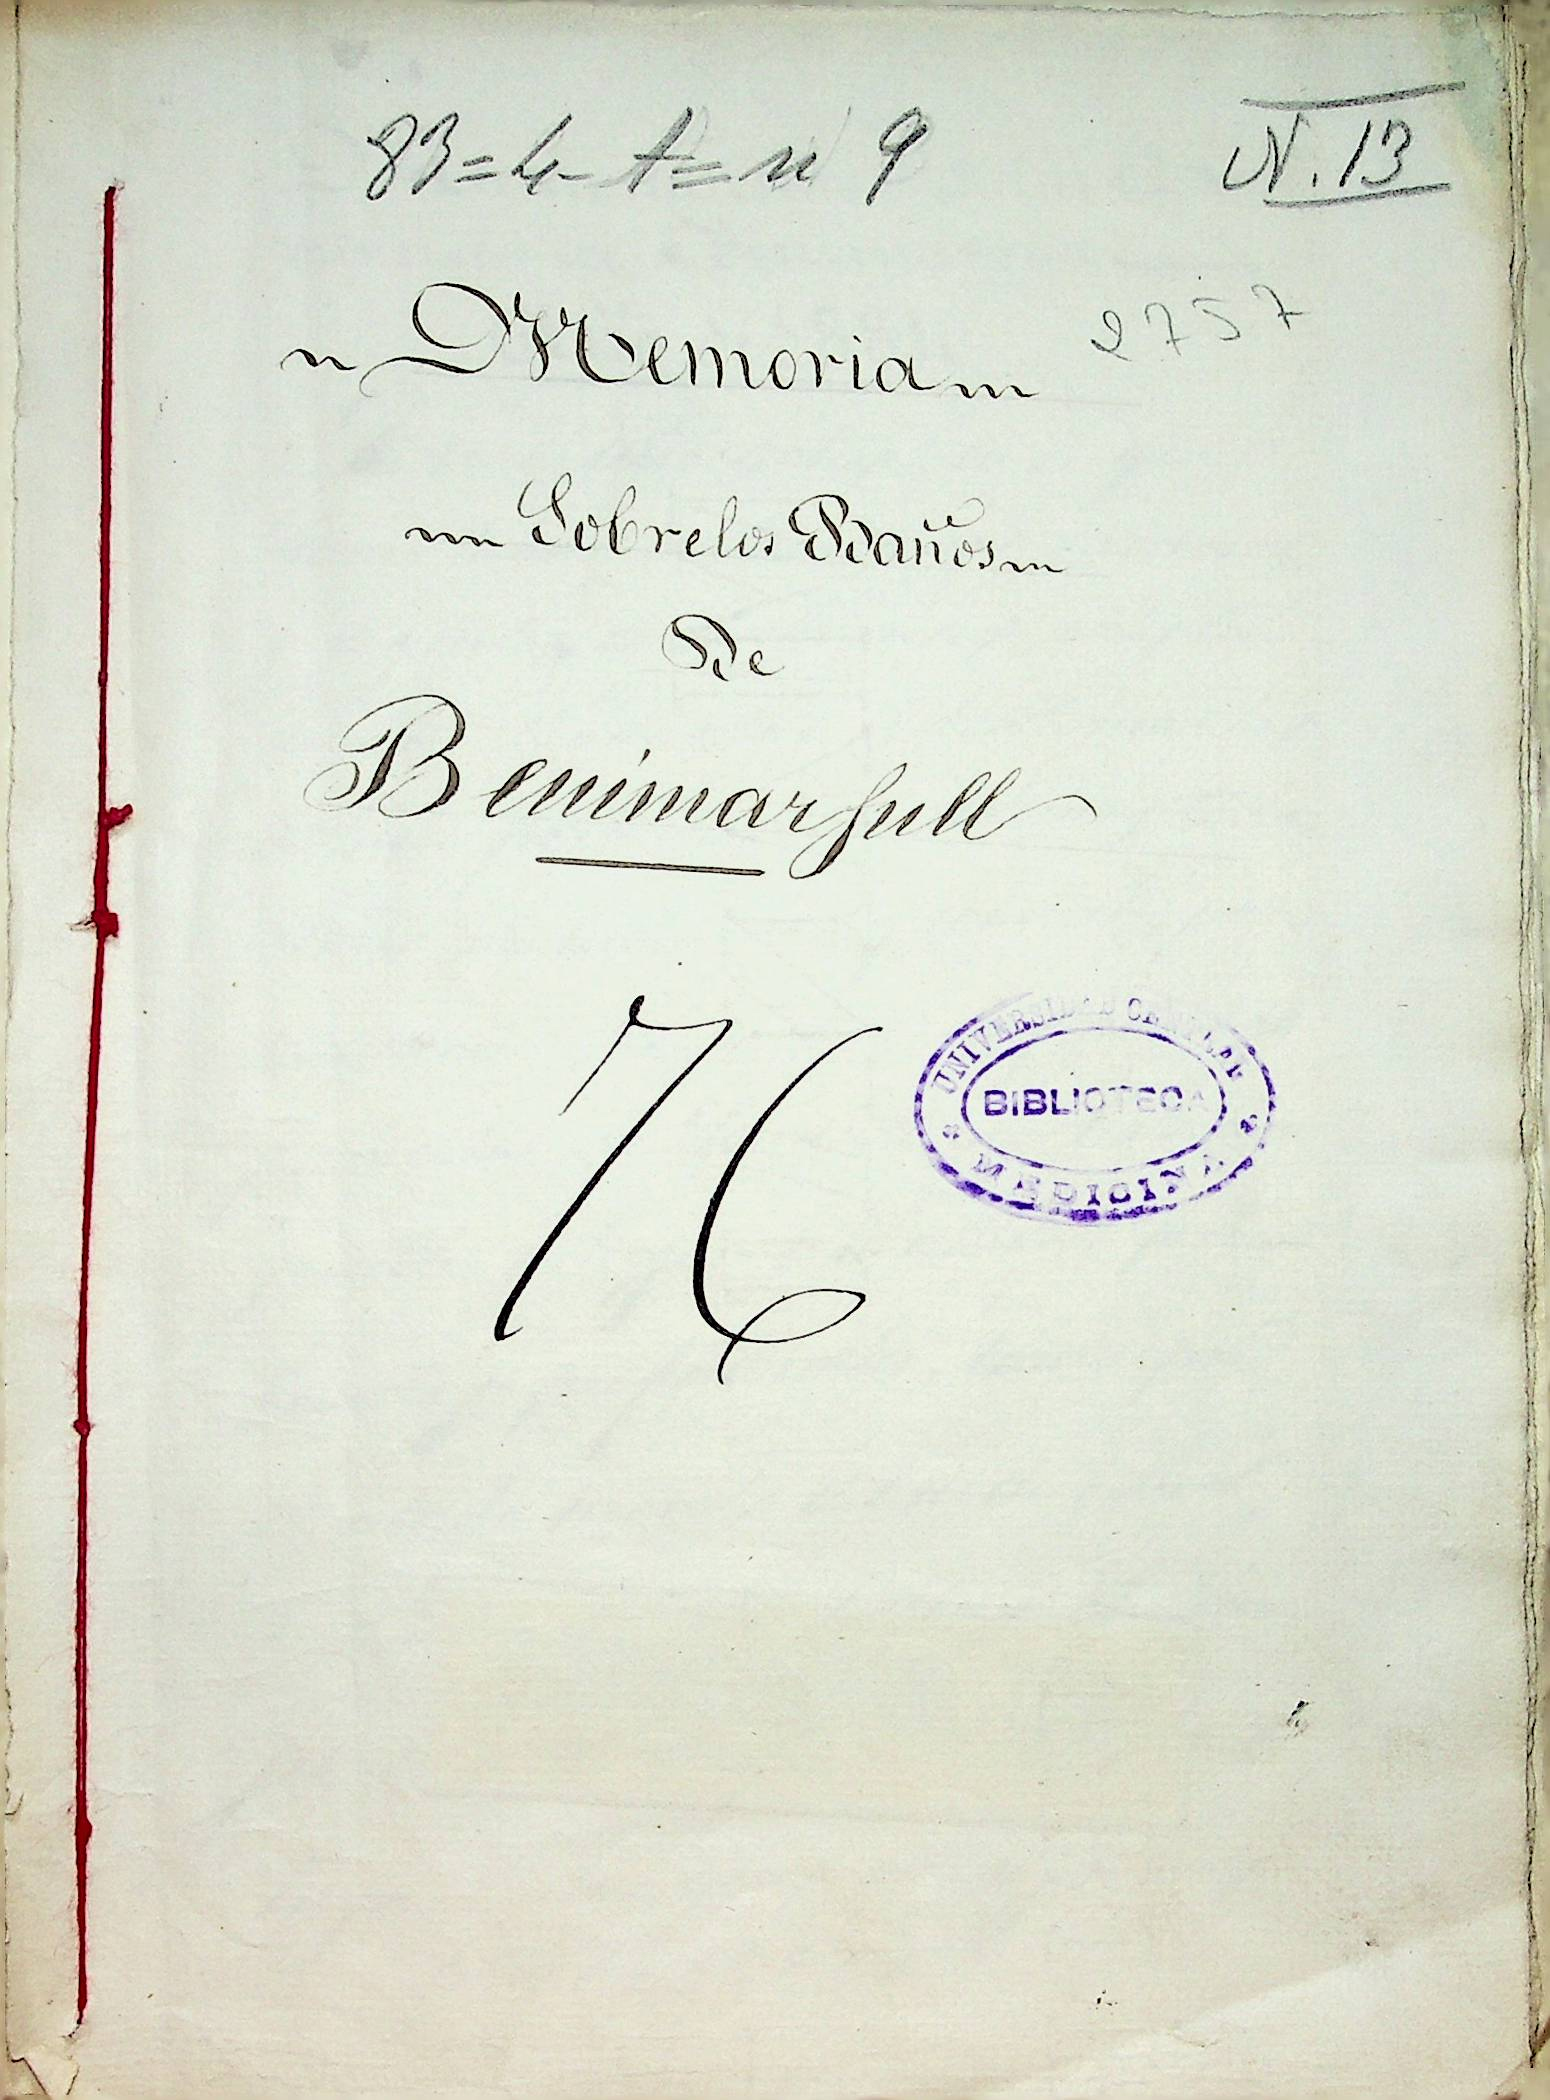 83=4-A=n 9
N. 13
Memoria
2757
Sobre los Baños
De
Benimarfull
76
UNIVERSIDAD CENTRAL
BIBLIOTECA
MEDICINA